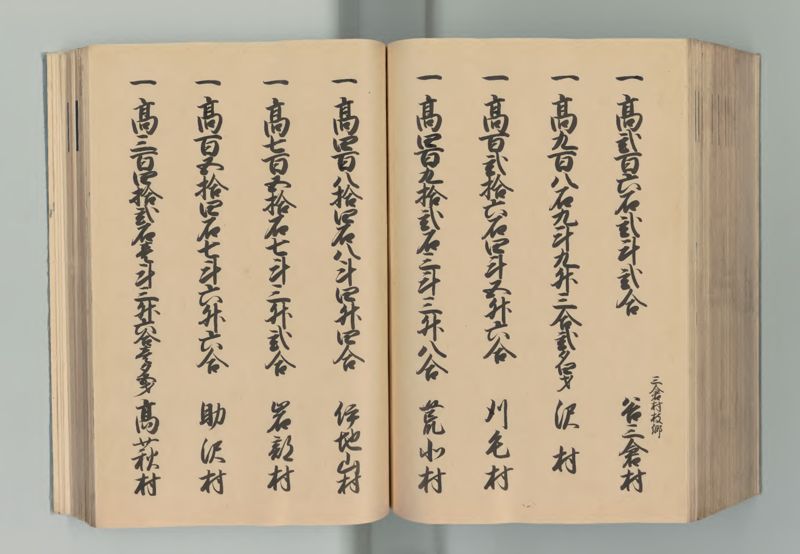 一 高弐百六石弐斗弐合
三倉村枝郷
谷三倉村
一 高九百八石九斗九升三合弐夕四才 沢村
一 高百弐拾六石四斗五升六合 刈毛村
一 高四百九拾弐石三斗三升八合 荒北村
一 高四百八拾四石八斗四升四合 伊地山村
一 高七百五拾石七斗三升弐合 岩部村
一 高百五拾四石七斗六升六合 助沢村
一 高三百四拾弐石壱斗三升六合壱夕弐才 高萩村